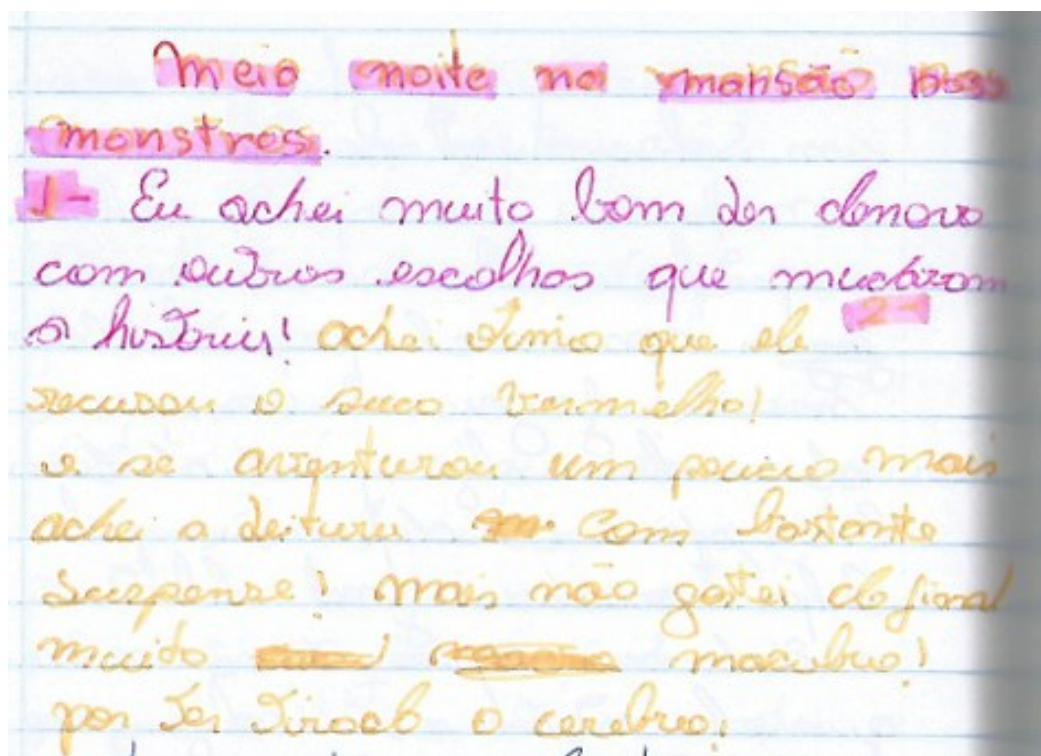 Meio noite na mansão dos
monstros.
1- Eu achei muito bom ler denovo
com outras escolhas que mudaram
a história! 2-
achei otimo que ele
recusou o suco vermelho!
e se aventurou um pouco mais
achei a leitura com bastante
suspense! mais não gostei do final
muito macabro!
por ter tirado o cerebro.